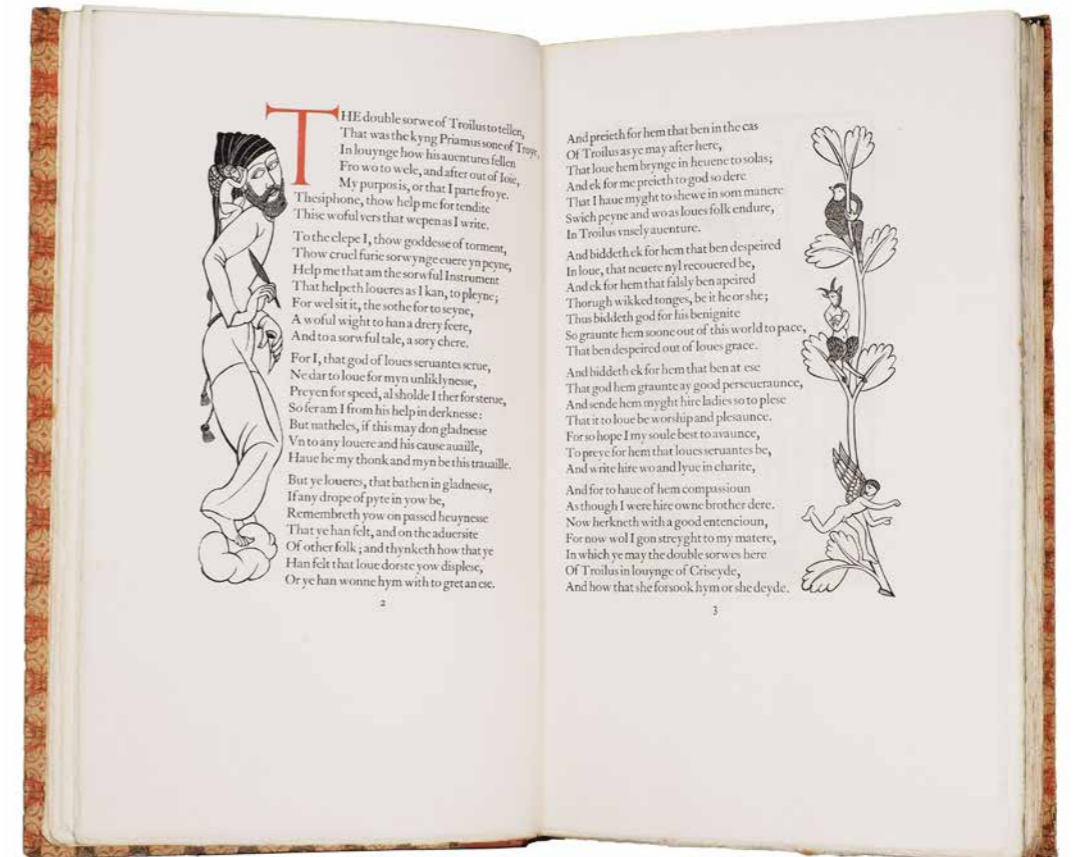 THE double sorwe of Troilus to tellen,
That was the kyng Priamus sone of Troye,
In louynge how his auentures fellen
Fro wo to wele, and after out of Ioie,
My purpos is, or that I parte fro ye.
Thesiphone, thow help me for tendite
Thise woful vers that wepen as I write.
To the clepe I, thow goddesse of torment,
Thow cruel furie sorwynge euere yn peyne,
Help me that am the sorwful Instrument
That helpeth loueres as I kan, to pleyne;
For wel sit it, the sothe for to seyne,
A woful wight to han a drery feere,
And to a sorwful tale, a sory chere.
For I, that god of loues seruantes serue,
Ne dar to loue for myn unliklynesse,
Preyen for speed, al sholde I ther for sterue,
So fer am I from his help in derknesse:
But natheles, if this may don gladnesse
Vn to any louere and his cause auaille,
Haue he my thonk and myn be this trauaille.
But ye loueres, that bathen in gladnesse,
If any drope of pyte in yow be,
Remembreth yow on passed heuynesse
That ye han felt, and on the aduersite
Of other folk; and thynketh how that ye
Han felt that loue dorste yow displese,
Or ye han wonne hym with to gret an ese.
2
And preieth for hem that ben in the cas
Of Troilus as ye may after here,
That loue hem brynge in heuene to solas;
And ek for me preieth to god so dere
That I haue myght to shewe in som manere
Swich peyne and wo as loues folk endure,
In Troilus vnsely auenture.
And biddeth ek for hem that ben despeired
In loue, that neuere nyl recouered be,
And ek for hem that falsly ben apeired
Thorugh wikked tonges, be it he or she;
Thus biddeth god for his benignite
So graunte hem soone out of this world to pace,
That ben despeired out of loues grace.
And biddeth ek for hem that ben at ese
That god hem graunte ay good perseueraunce,
And sende hem myght hire ladies so to plese
That it to loue be worship and plesaunce.
For so hope I my soule best to avaunce,
To preye for hem that loues seruantes be,
And write hire wo and lyue in charite,
And for to haue of hem compassioun
As though I were hire owne brother dere.
Now herkneth with a good entencioun,
For now wol I gon streyght to my matere,
In which ye may the double sorwes here
Of Troilus in louynge of Criseyde,
And how that she forsook hym or she deyde.
3